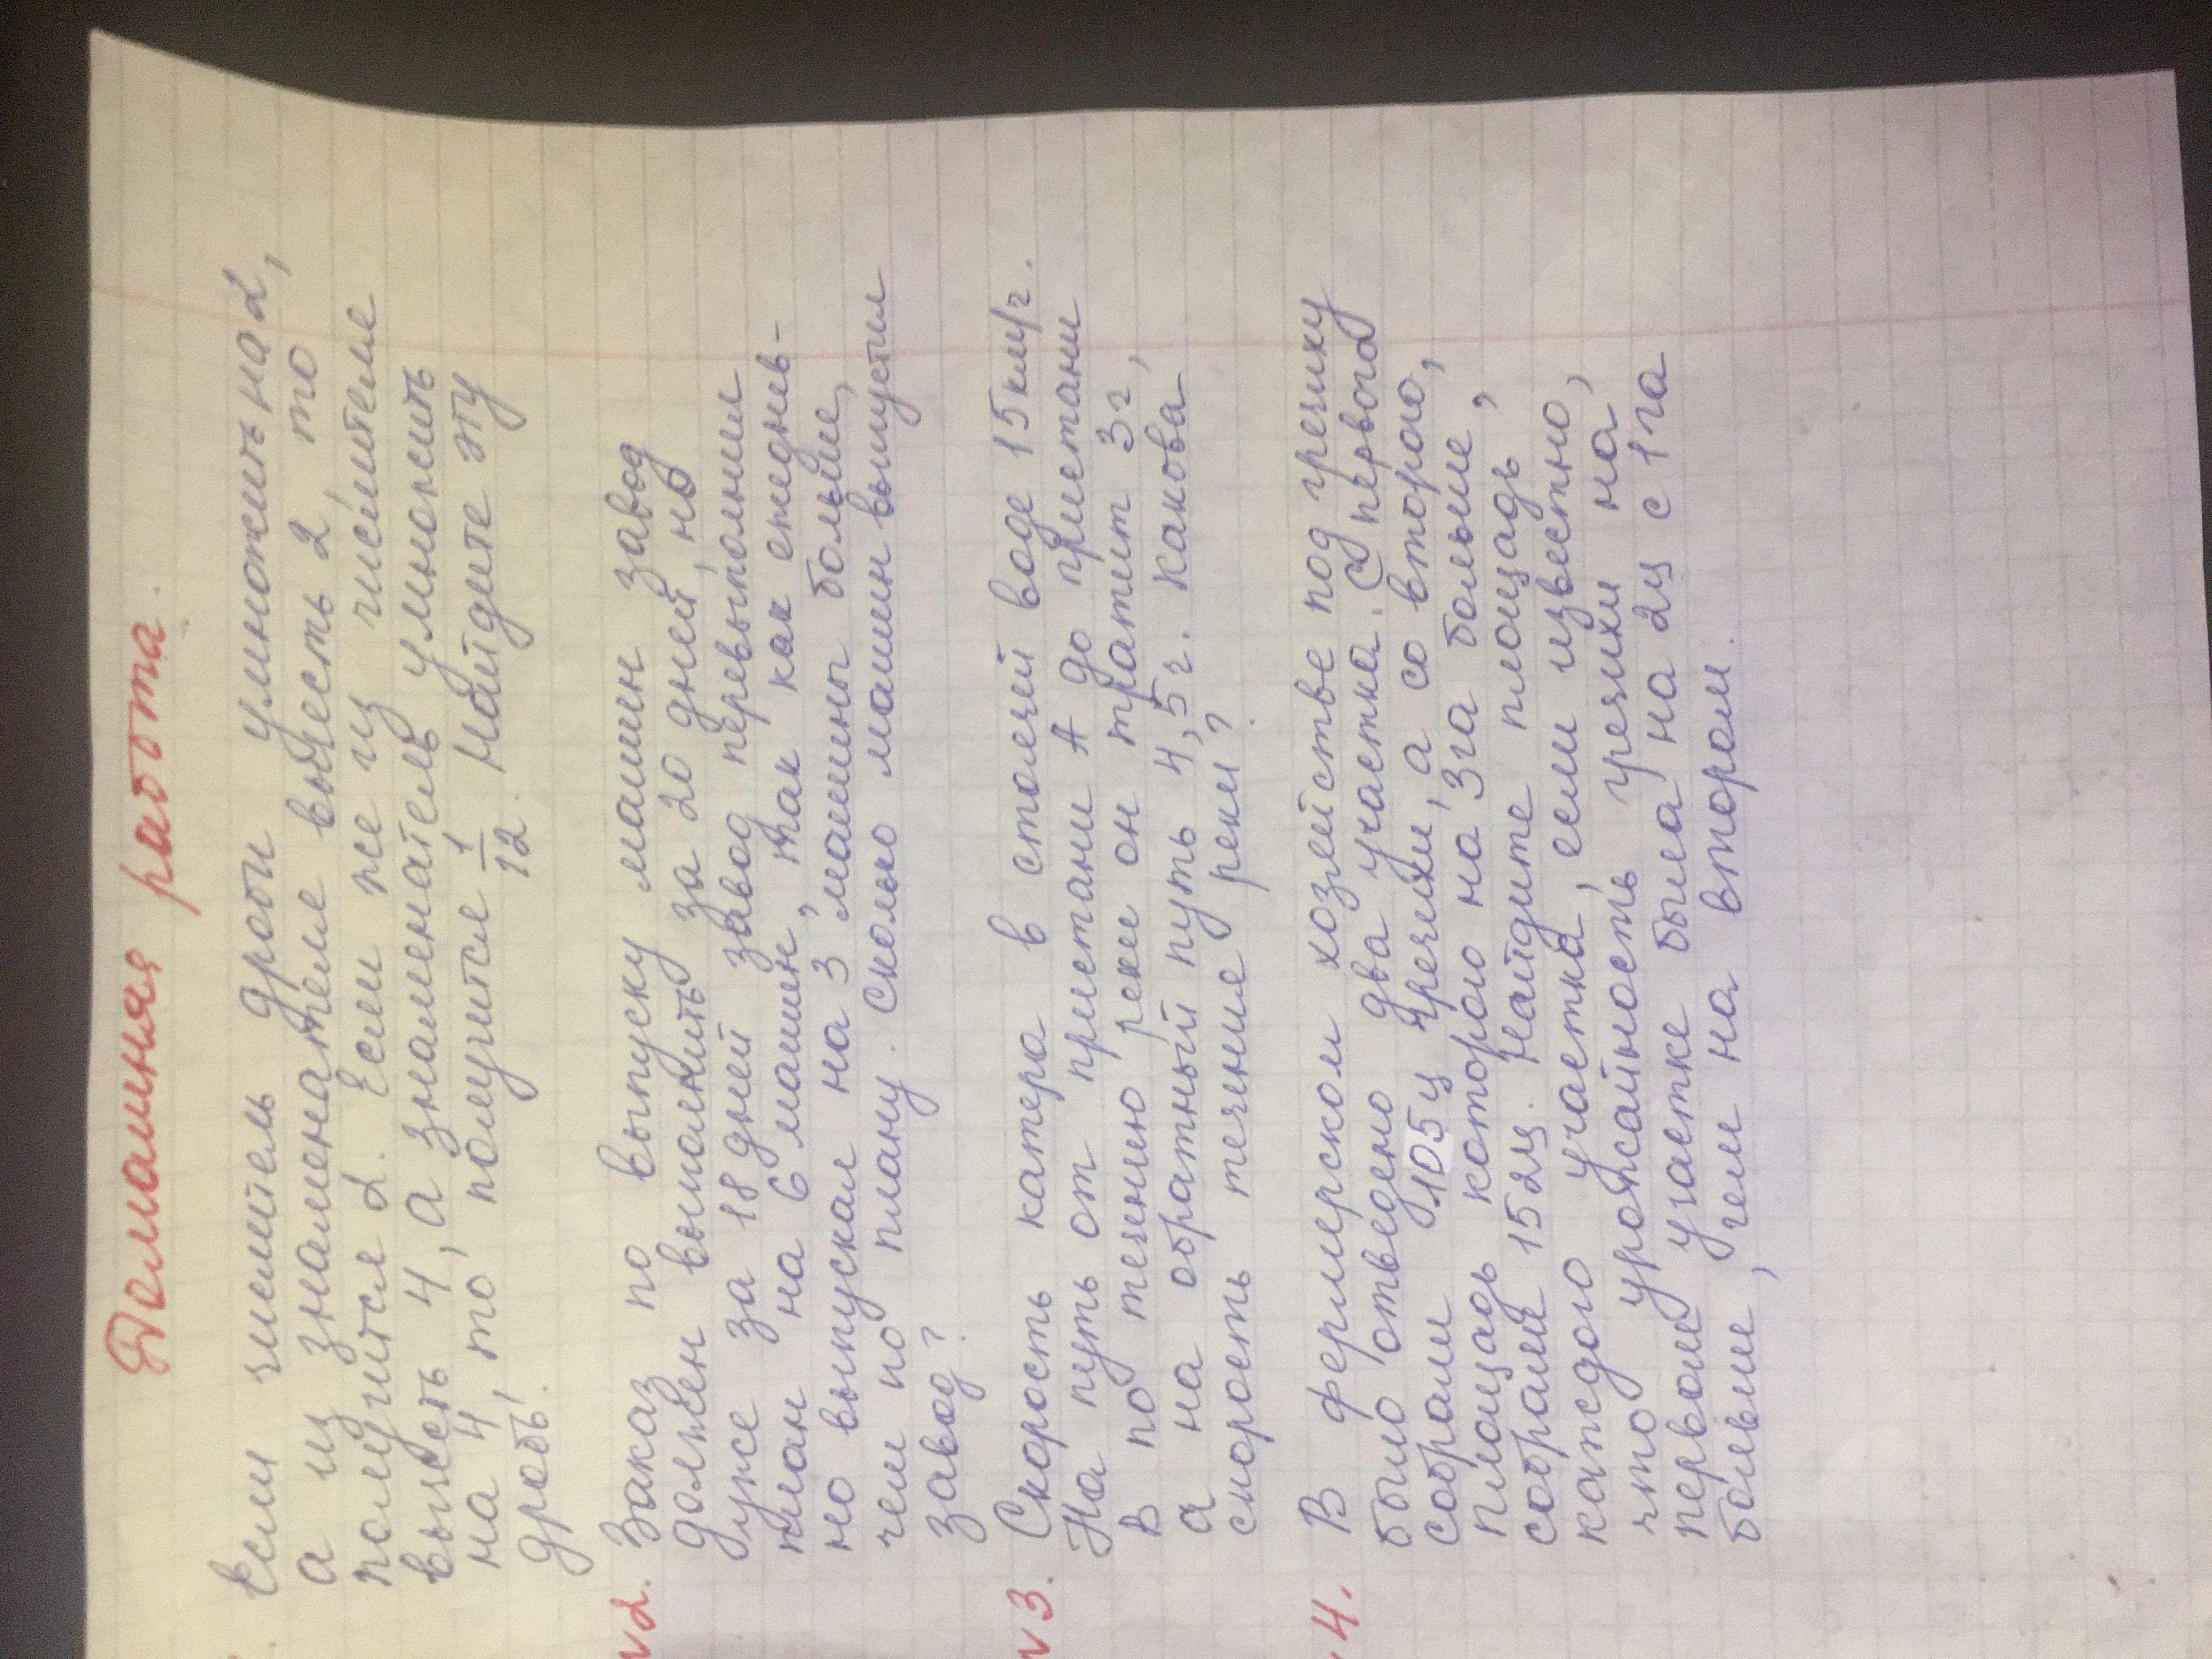 Домашняя работа.
Если числитель дроби умножить на 2,
а из знаменателя вычесть 2, то
получится 2. Если же из числителя
вычесть 4, а знаменатель умножить
на 4, то получится 1/12. Найдите эту
дробь.
№2. Заказ по выпуску машин завод
должен выполнить за 20 дней, но
уже за 18 дней завод перевыполнил
план на 6 машин, так как ежеднев-
но выпускал на 3 машины больше,
чем по плану. Сколько машин выпустил
завод?
№3. Скорость катера в стоячей воде 15км/ч.
На путь от пристани А до пристани
В по течению реки он тратит 3ч,
а на обратный путь 4,5ч. Какова
скорость течения реки?
№4. В фермерском хозяйстве под гречиху
было отведено два участка. С первого
собрали 105ц гречихи, а со второго,
площадь которого на 3га больше,
собрали 152ц. Найдите площадь
каждого участка, если известно,
что урожайность гречихи на
первом участке была на 2ц с 1га
больше, чем на втором.